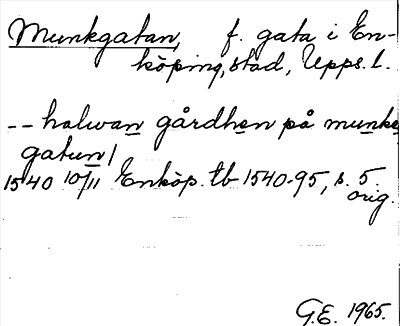 Munkgatan, f. gata i En-
köping, stad, Upps. l.
-- halwan gårdhen på munke
gatun/
1540 10/11 Enköp. tb 1540-95, s. 5
orig.
G.E. 1965.